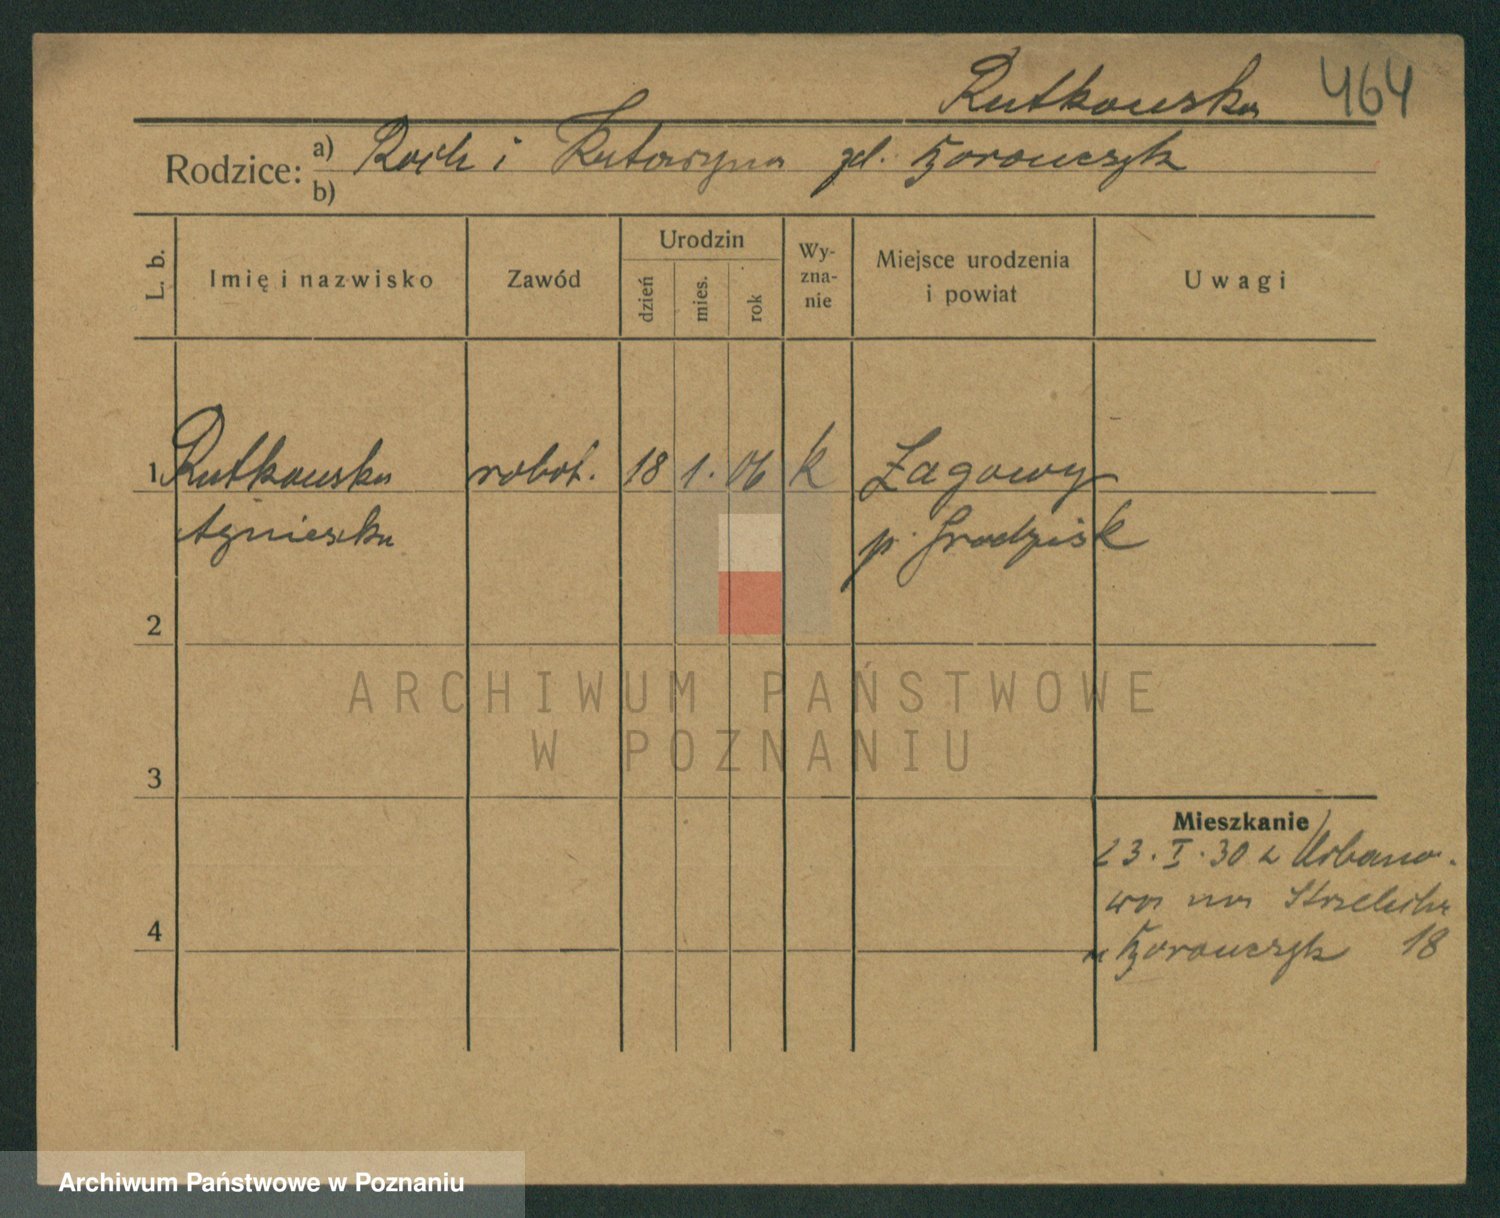 Rutkowska 464
Rodzice: a) Roch i Katarzyna zd.
b)
L. b.
Imię i nazwisko
Zawód
Urodzin
dzień
mies.
rok
Wy-
zna-
nie
Miejsce urodzenia
i powiat
Uwagi
1 Rutkowska robot. 18 1. 06 k
Agnieszka p. Grodzisk
2
ARCHIWUM PAŃSTWOWE
W POZNANIU
3
Mieszkanie
23. I. 30 z Urbano-
wa na
4
18
Archiwum Państwowe w Poznaniu